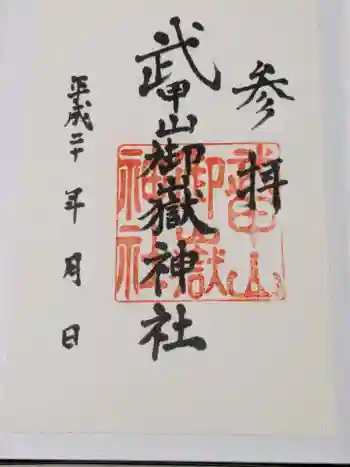 参拝
武甲山御嶽神社
武甲山
御嶽
神社
平成二十 年 月 日